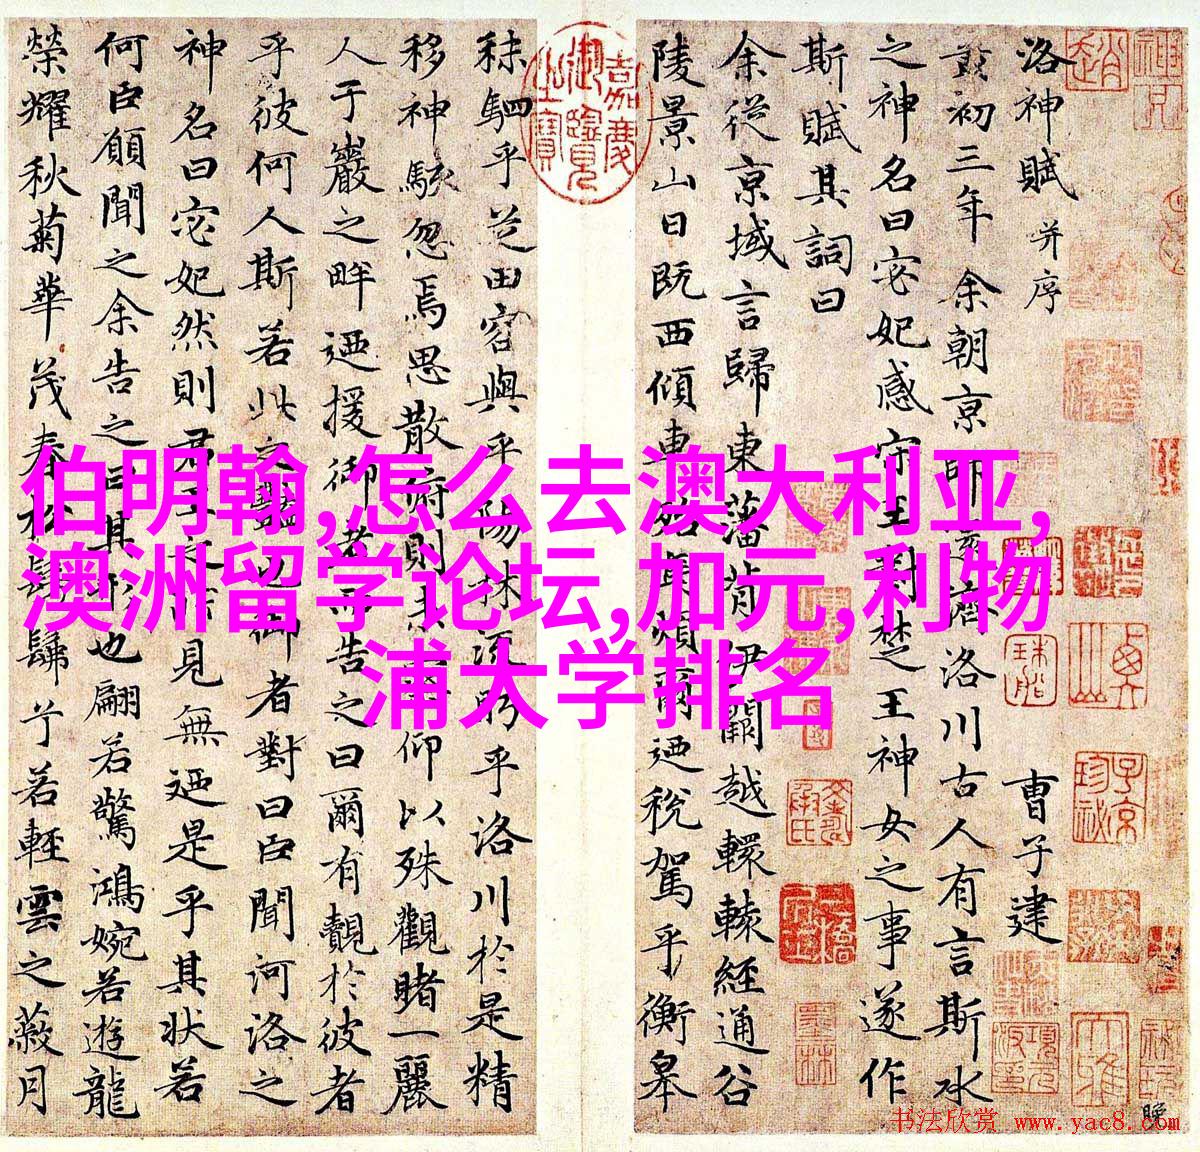 洛神賦 并序 曹子建
黃初三年余朝京師還濟洛川古人有言斯水
之神名曰宓妃感宋玉對楚王神女之事遂作
斯賦其詞曰
余從京域言歸東藩背伊闕越轘轅經通谷
陵景山日既西傾車殆馬煩爾迺稅駕乎蘅皋
嘉慶御覽之寶
秣駟乎芝田容與乎陽林流眄乎洛川於是精
移神駭忽焉思散俯則未察仰以殊觀睹一麗
人于巖之畔迺援御者而告之曰爾有覿於彼者
乎彼何人斯若此之豔也御者對曰臣聞河洛之
神名曰宓妃然則君王之所見無迺是乎其狀若
何臣願聞之余告之曰其形也翩若驚鴻婉若遊龍
榮耀秋菊華茂春松髣髴兮若輕雲之蔽月
伯明翰,怎么去澳大利亚,
澳洲留学论坛,加元,利物
浦大学排名
书法欣赏 www.yac8.com